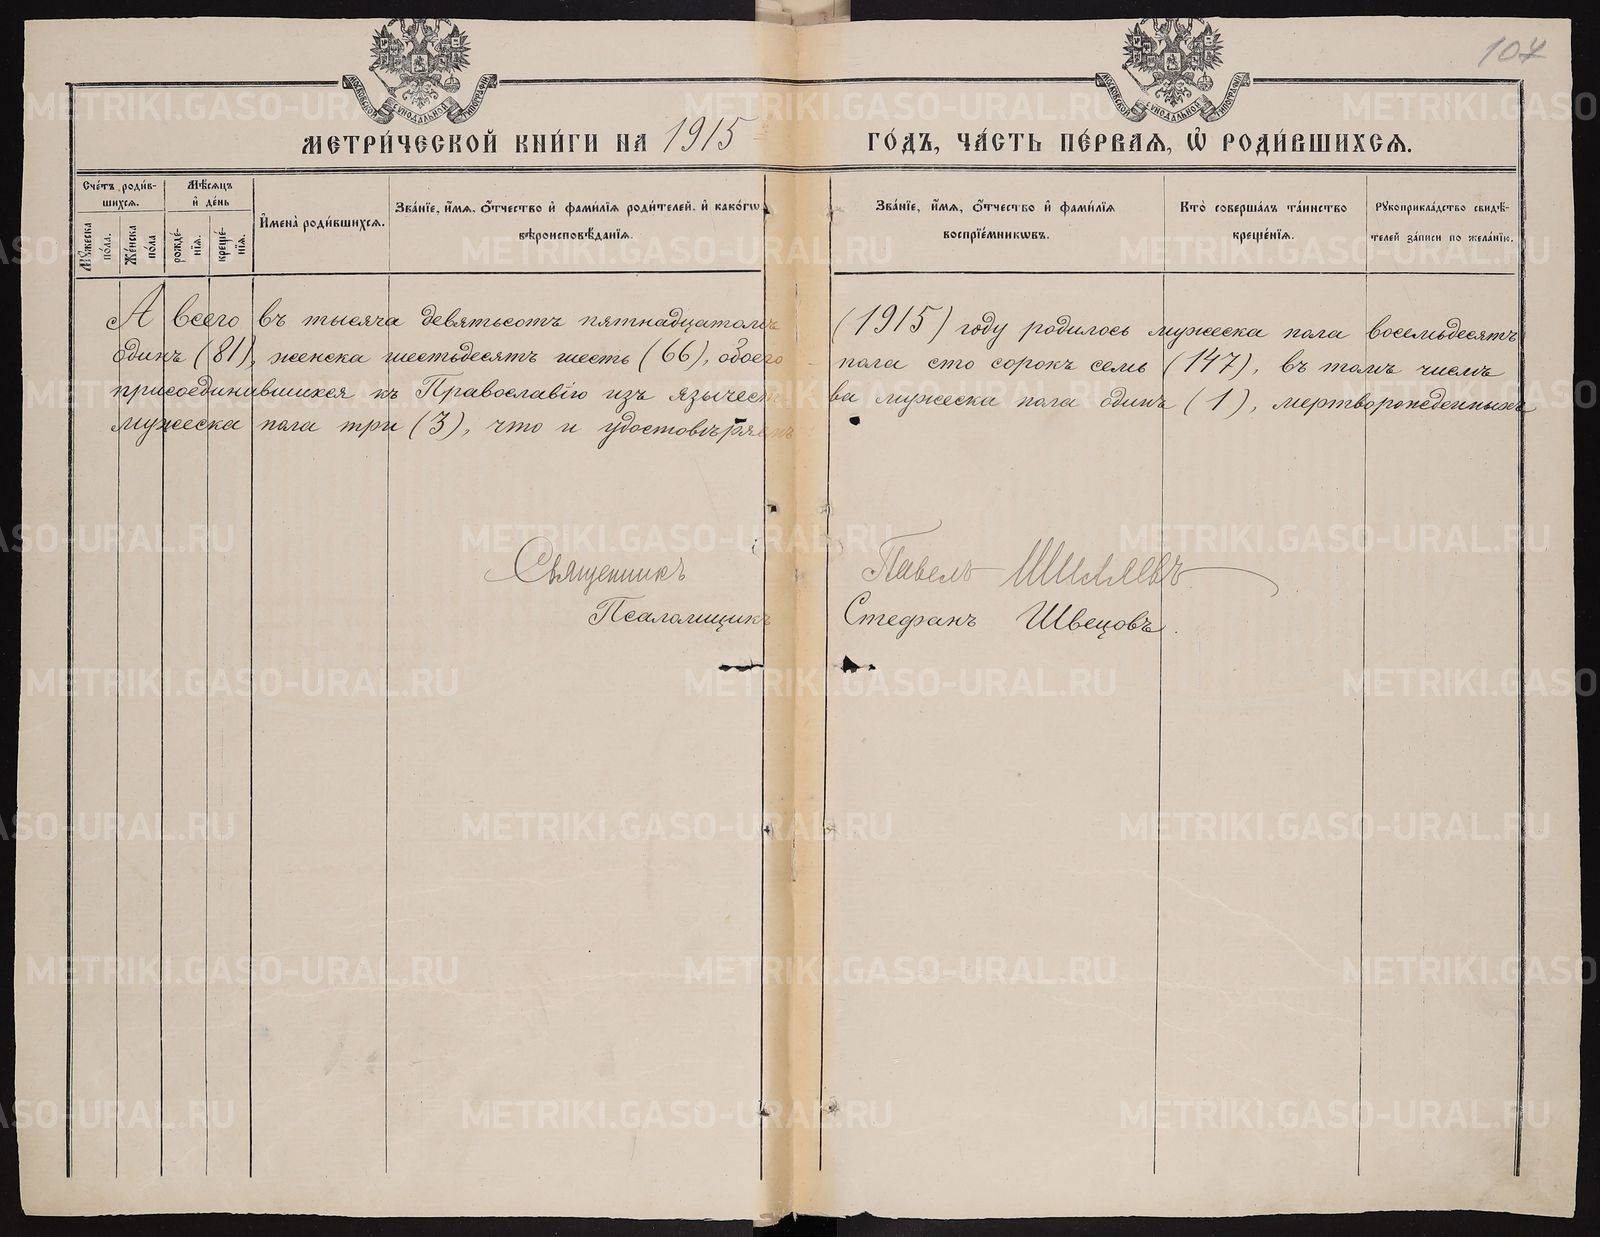 107
МОСКОВСКОЙ СѴНОДАЛЬНОЙ ТИПОГРАФІИ
МОСКОВСКОЙ СѴНОДАЛЬНОЙ ТИПОГРАФІИ
МЕТРИ́ЧЕСКОЙ КНИ́ГИ НА 1915 ГО́ДЪ, ЧА́СТЬ ПЕ́РВАѦ, Ѡ҆ РОДИ́ВШИХСѦ.
Сче́тъ роди́в-
шихсѧ.
Мꙋ́жеска по́ла.
Же́нска по́ла
Мѣ́сѧцъ
и҆ де́нь
рожде́-
нїѧ.
креще́-
нїѧ.
И҆мена̀ роди́вшихсѧ.
Зва́нїе, и҆́мѧ, ѻ҆́тчество и҆ фами́лїѧ роди́телей, и҆ како́гѡ
вѣроисповѣ́данїѧ.
Зва́нїе, и҆́мѧ, ѻ҆́тчество и҆ фами́лїѧ
воспрїе́мникѡвъ.
Кто̀ соверша́лъ та́инство
креще́нїѧ.
Рꙋкоприкла́дство свидѣ́-
телей за́писи по жела́нїю.
А всего въ тысяча девятьсотъ пятнадцатомъ (1915) году родилось мужеска пола восемьдесятъ
одинъ (81), женска шестьдесятъ шесть (66), обоего пола сто сорокъ семь (147), въ томъ числѣ
присоединившихся къ Православію изъ язычества мужеска пола одинъ (1), мертворожденныхъ
мужеска пола три (3), что и удостовѣряемъ
Священникъ Павелъ Шиляевъ
Псаломщикъ Стефанъ Швецовъ.
METRIKI.GASO-URAL.RU